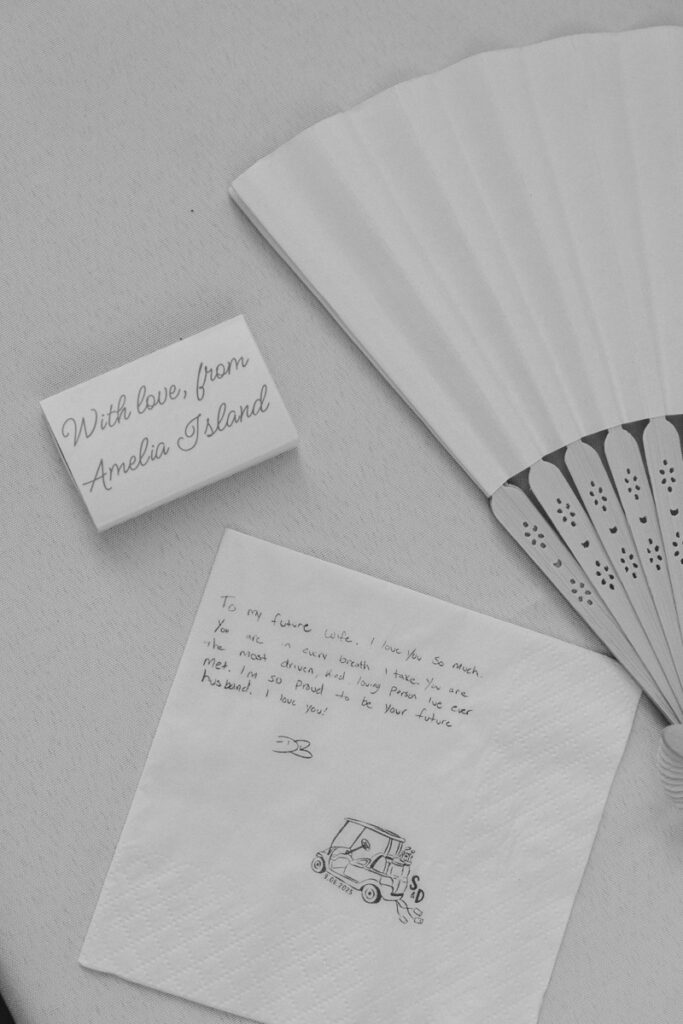 With love, from
Amelia Island
To my future wife. I love you so much.
You are in every breath I take. You are
the most driven, kind loving person I've ever
met. I'm so proud to be your future
husband. I love you!
DB
S
&
D